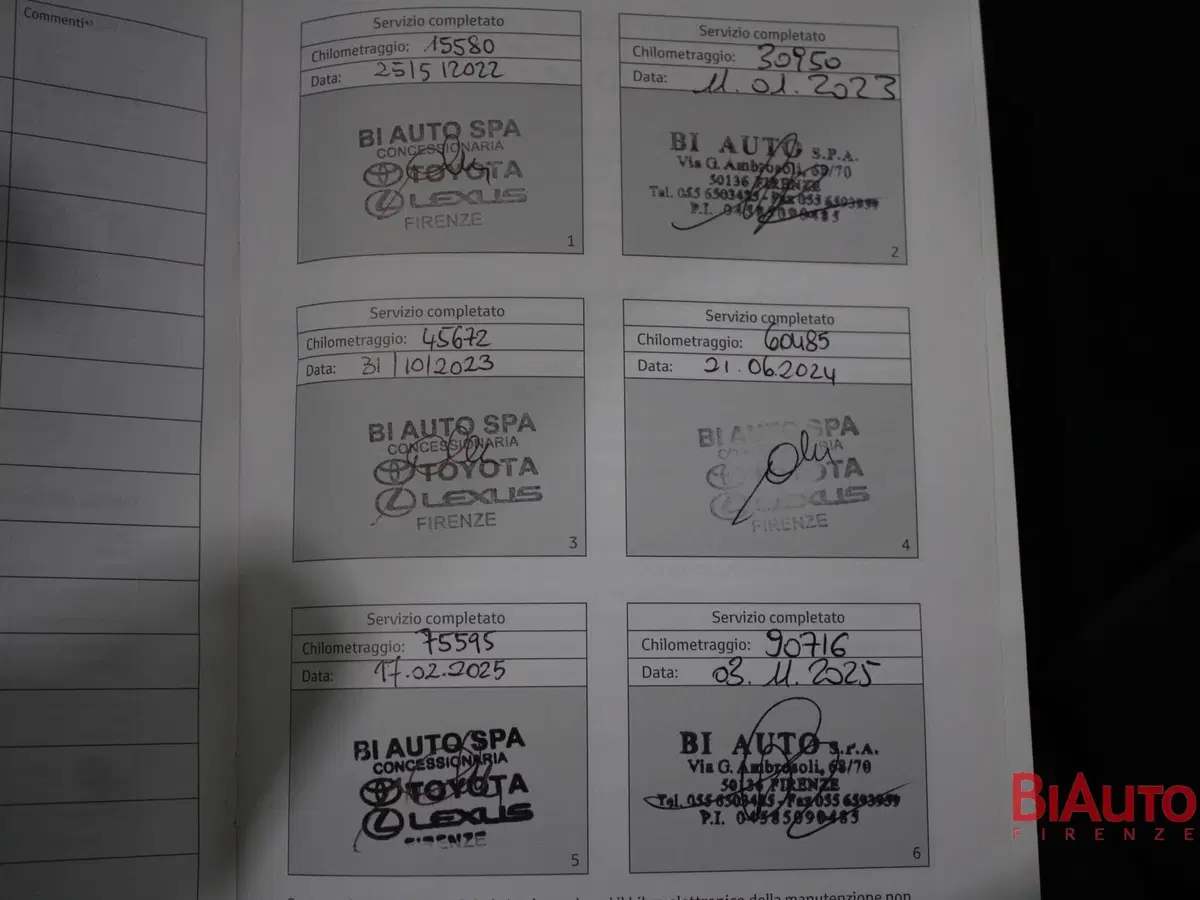 Commenti*⁾
Servizio completato
Chilometraggio: 15580
Data: 25/5/2022
BI AUTO SPA
CONCESSIONARIA
TOYOTA
LEXUS
FIRENZE
1
Servizio completato
Chilometraggio: 30950
Data: 11.01.2023
BI AUTO S.P.A.
Via G. Ambrosoli, 68/70
50136 FIRENZE
Tel. 055 6503495 - Fax 055 6593959
P.I. 04585090485
2
Servizio completato
Chilometraggio: 45672
Data: 31/10/2023
BI AUTO SPA
CONCESSIONARIA
TOYOTA
LEXUS
FIRENZE
3
Servizio completato
Chilometraggio: 60485
Data: 21.06.2024
BI AUTO SPA
TOYOTA
LEXUS
FIRENZE
4
Servizio completato
Chilometraggio: 75595
Data: 17.02.2025
BI AUTO SPA
CONCESSIONARIA
TOYOTA
LEXUS
FIRENZE
5
Servizio completato
Chilometraggio: 90716
Data: 03.11.2025
BI AUTO S.P.A.
Via G. Ambrosoli, 68/70
50136 FIRENZE
Tel. 055 6503495 - Fax 055 6593959
P.I. 04585090485
6
elettronico della manutenzione non
BIAUTO
FIRENZE